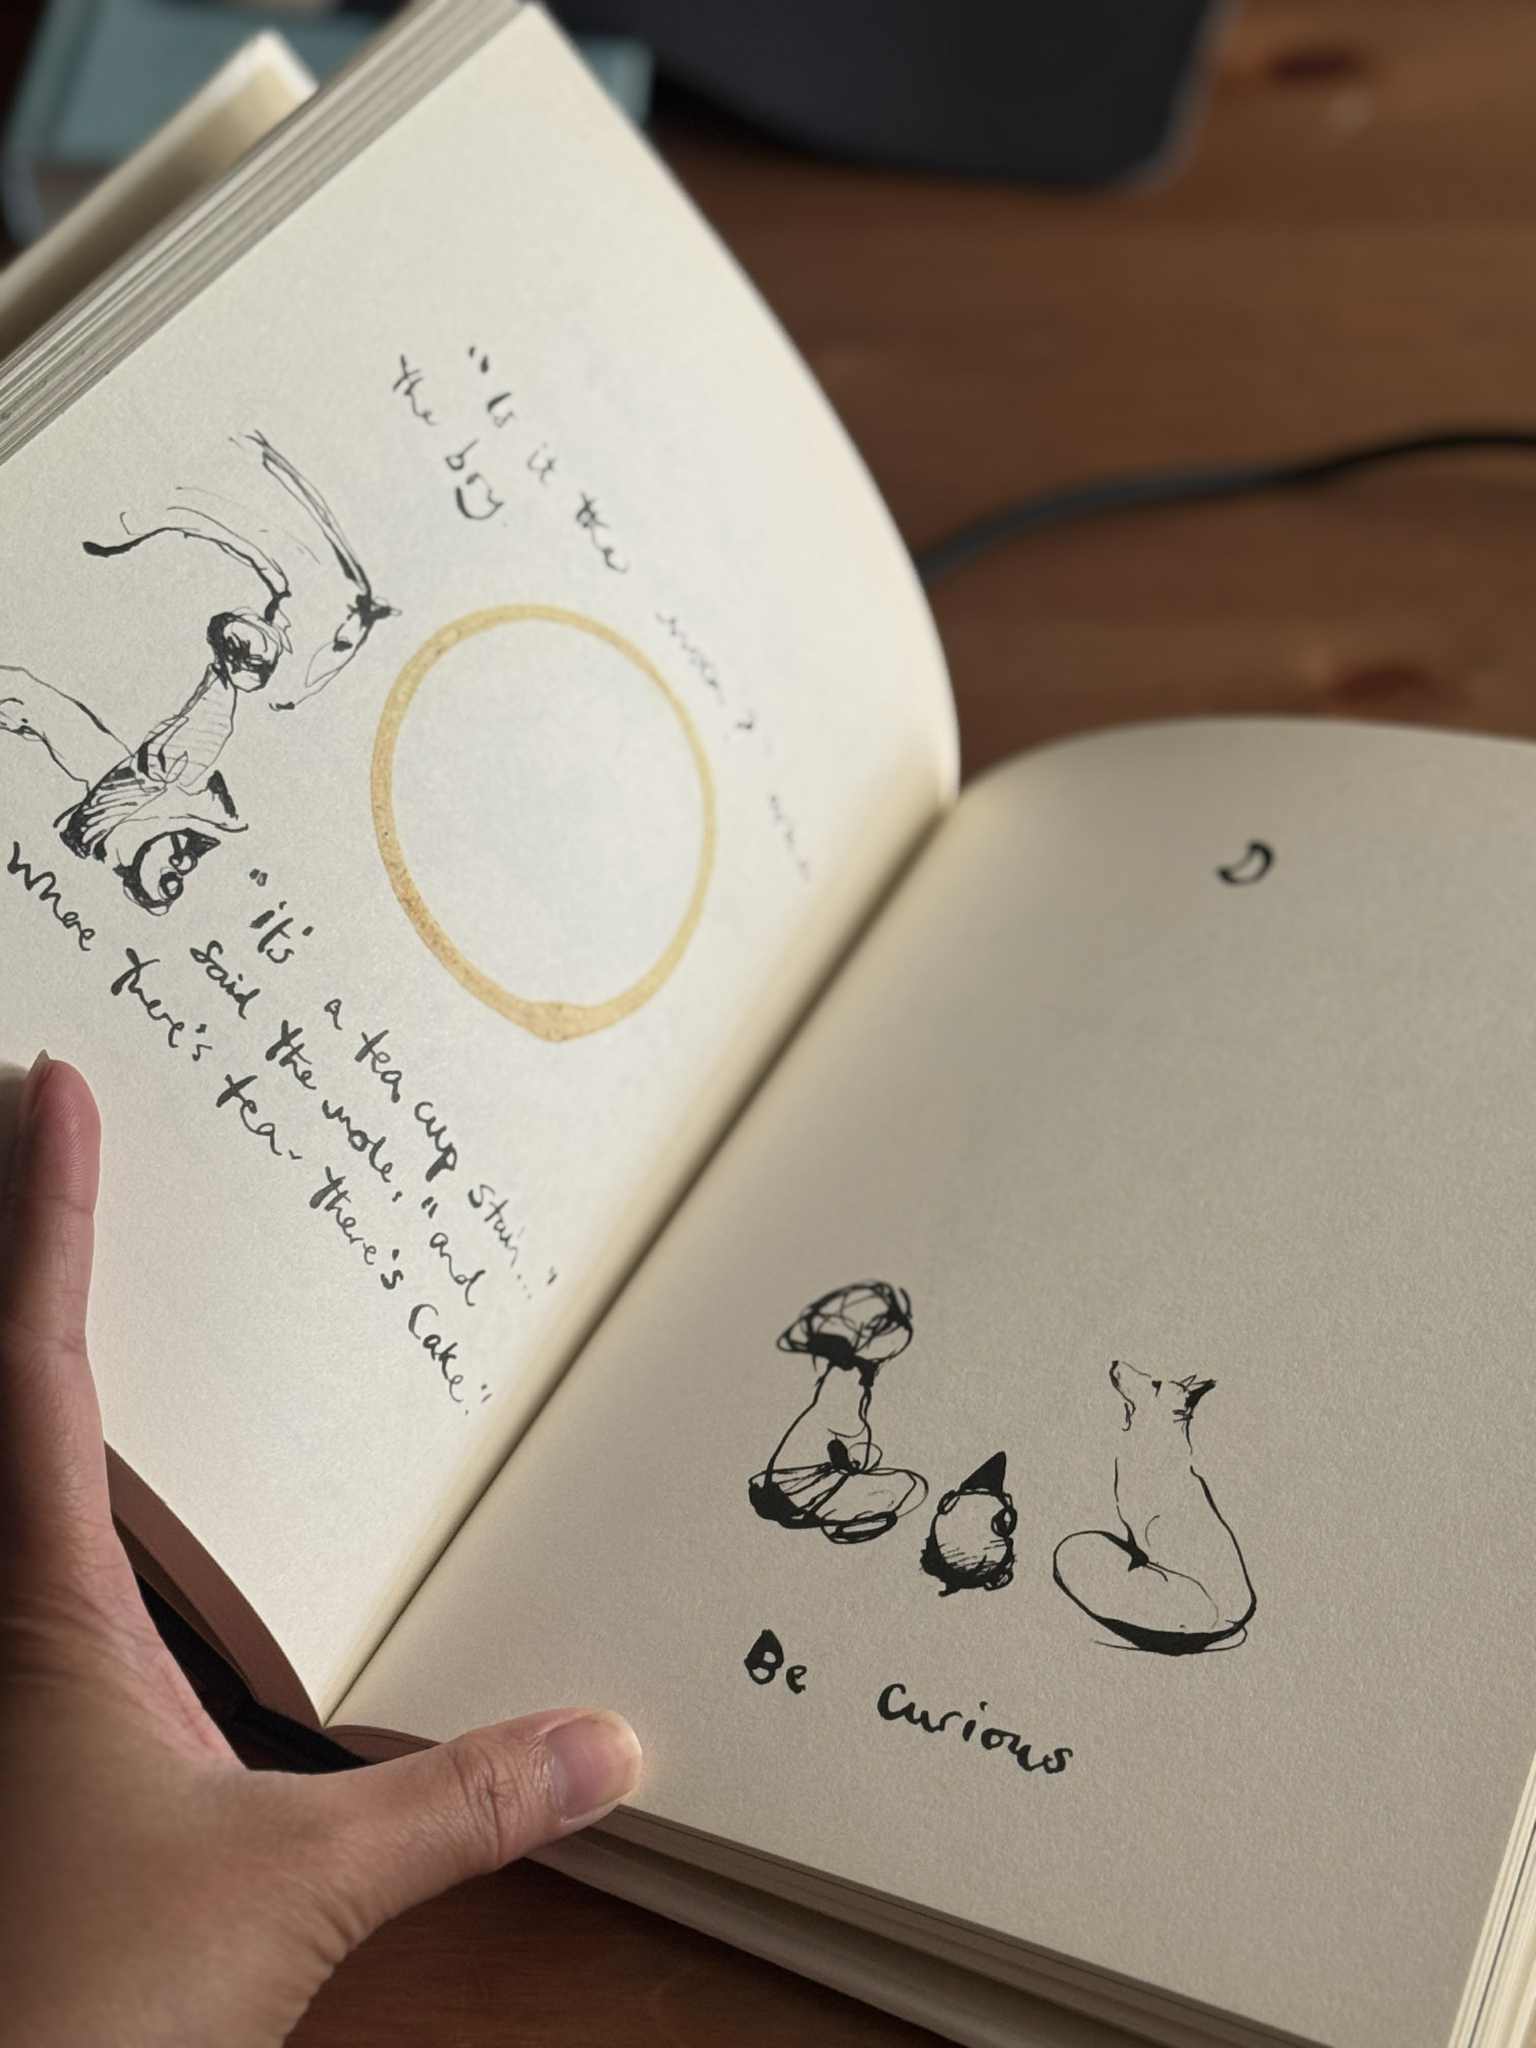 "Is it the moon?" asked
the boy.
"it's a tea cup stain..."
said the mole, "and
where there's tea - there's Cake."
Be Curious